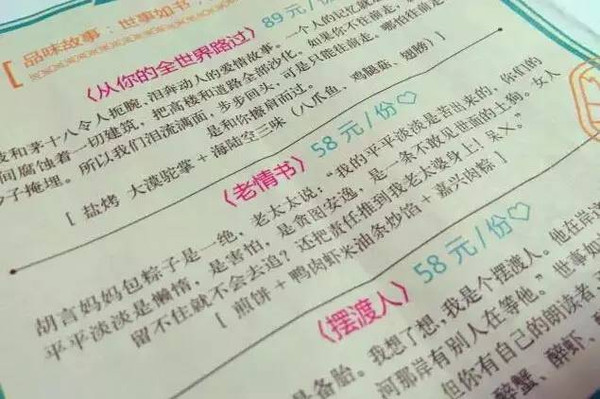 [ 品味故事：世事如书，
《从你的全世界路过》 89元/份
一个人的记忆就
和茅十八令人扼腕、泪奔动人的爱情故事。如果你不往前走，就
间腐蚀着一切建筑，把高楼和道路全部沙化。哪怕往前走
子掩埋。所以我们泪流满面，步步回头，可是只能往前走。
是和你擦肩而过。
[ 盐烤 大漠驼掌 + 海陆空三味（八爪鱼、鸡腿菇、翅膀）]
《老情书》 58元/份♡
胡言妈妈包粽子是一绝，老太太说：“我的平平淡淡是苦出来的，你们的
平平淡淡是懒惰，是害怕，是贪图安逸，是一条不敢见世面的土狗。女人
留不住就不会去追？还把责任推到我老太婆身上！呆×。”
[ 煎饼 + 鸭肉虾米油条炒馅 + 嘉兴肉粽 ]
《摆渡人》 58元/份♡
是备胎。我想了想，我是个摆渡人。他在岸这
河那岸有别人在等他。” 世事如
但你有自己的朗读者，
醉蟹、醉虾、